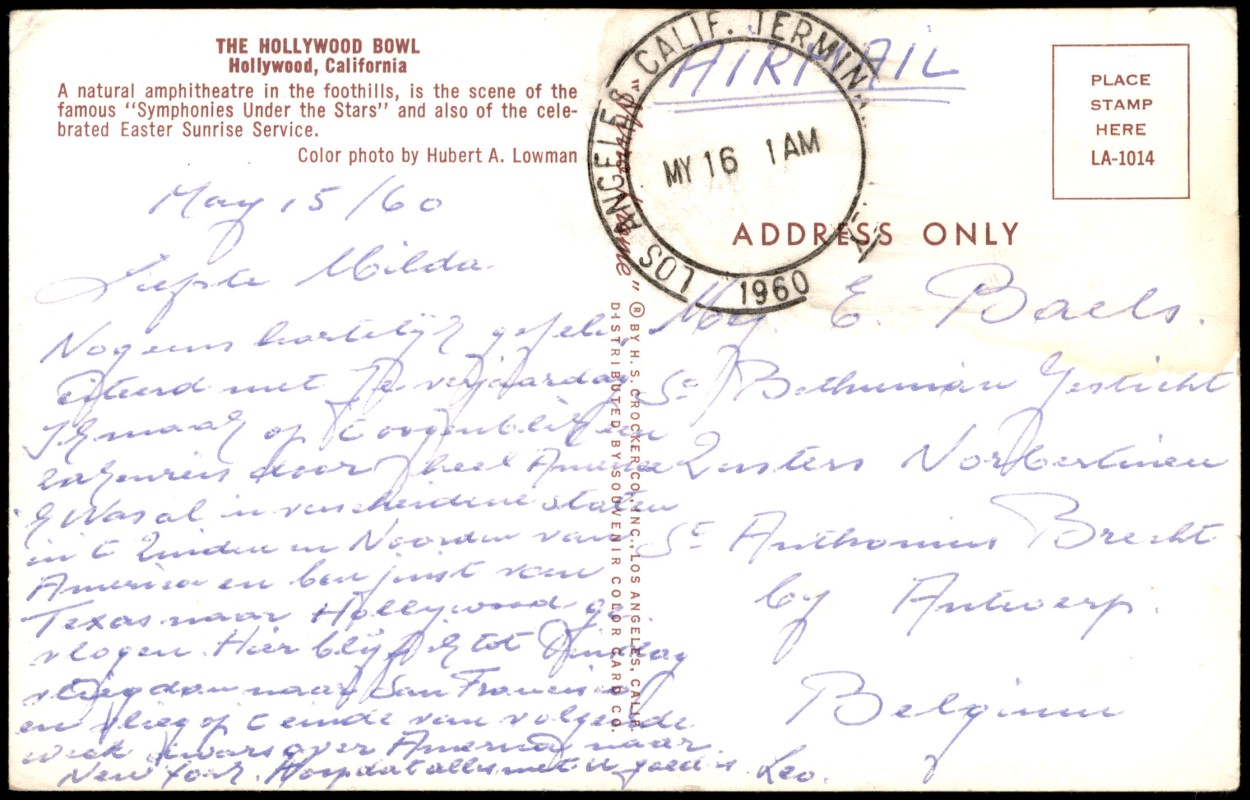 THE HOLLYWOOD BOWL
Hollywood, California
A natural amphitheatre in the foothills, is the scene of the
famous "Symphonies Under the Stars" and also of the cele-
brated Easter Sunrise Service.
Color photo by Hubert A. Lowman
May 15/60
Liefste Milda
Nogeens hartelijk gefeli
citeerd met je verjaardag
Ik maak op t oogenblik een
zakenreis door heel America
& was al in verscheidene staten
in t Zuiden en Noorden van
America en ben juist van
Texas naar Hollywood ge
vlogen. Hier blijf ik tot Dinsdag
vlieg dan naar San Francisco
en vlieg op t einde van volgende
week dwars over America naar
New York. Hoop dat alles met U goed is. Leo.
"
®
BY H. S. CROCKER CO., INC., LOS ANGELES, CALIF.
DISTRIBUTED BY SOUVENIR COLOR CARD CO.
LOS ANGELES CALIF. TERMIN
MY 16 1AM
1960
AIRMAIL
PLACE
STAMP
HERE
LA-1014
ADDRESS ONLY
E. Baels.
St Gesticht
Zusters Norbertinen
St Anthonius Brecht
by Antwerp.
Belgium